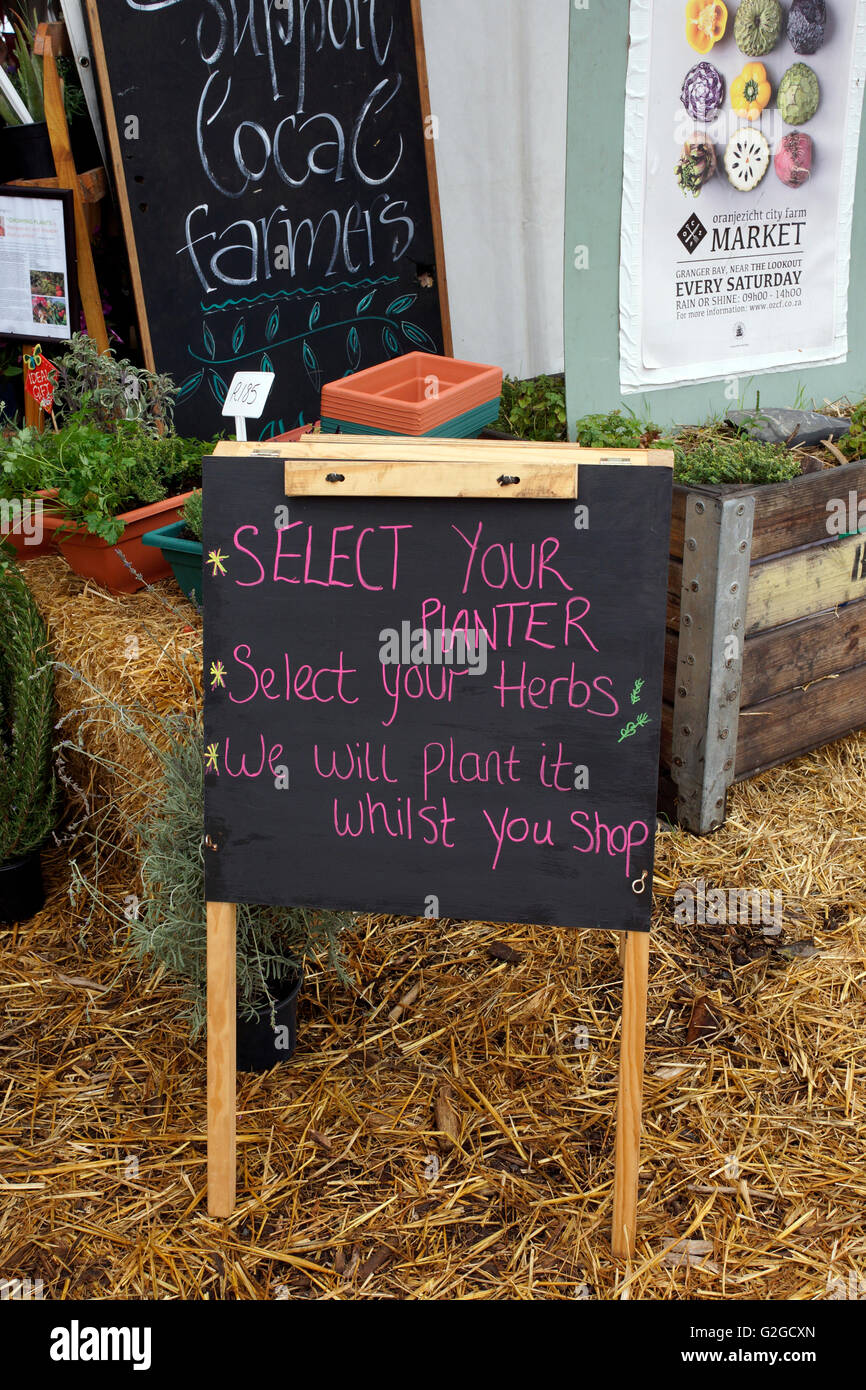 Support
Local
farmers
oranjezicht city farm
MARKET
GRANGER BAY, NEAR THE LOOKOUT
EVERY SATURDAY
RAIN OR SHINE: 09h00 - 14h00
For more information: www.ozcf.co.za
IDEAL
GIFT
R185
SELECT YOUR
PLANTER
Select your Herbs
We will plant it
whilst you shop
alamy
Image ID: G2GCXN
www.alamy.com